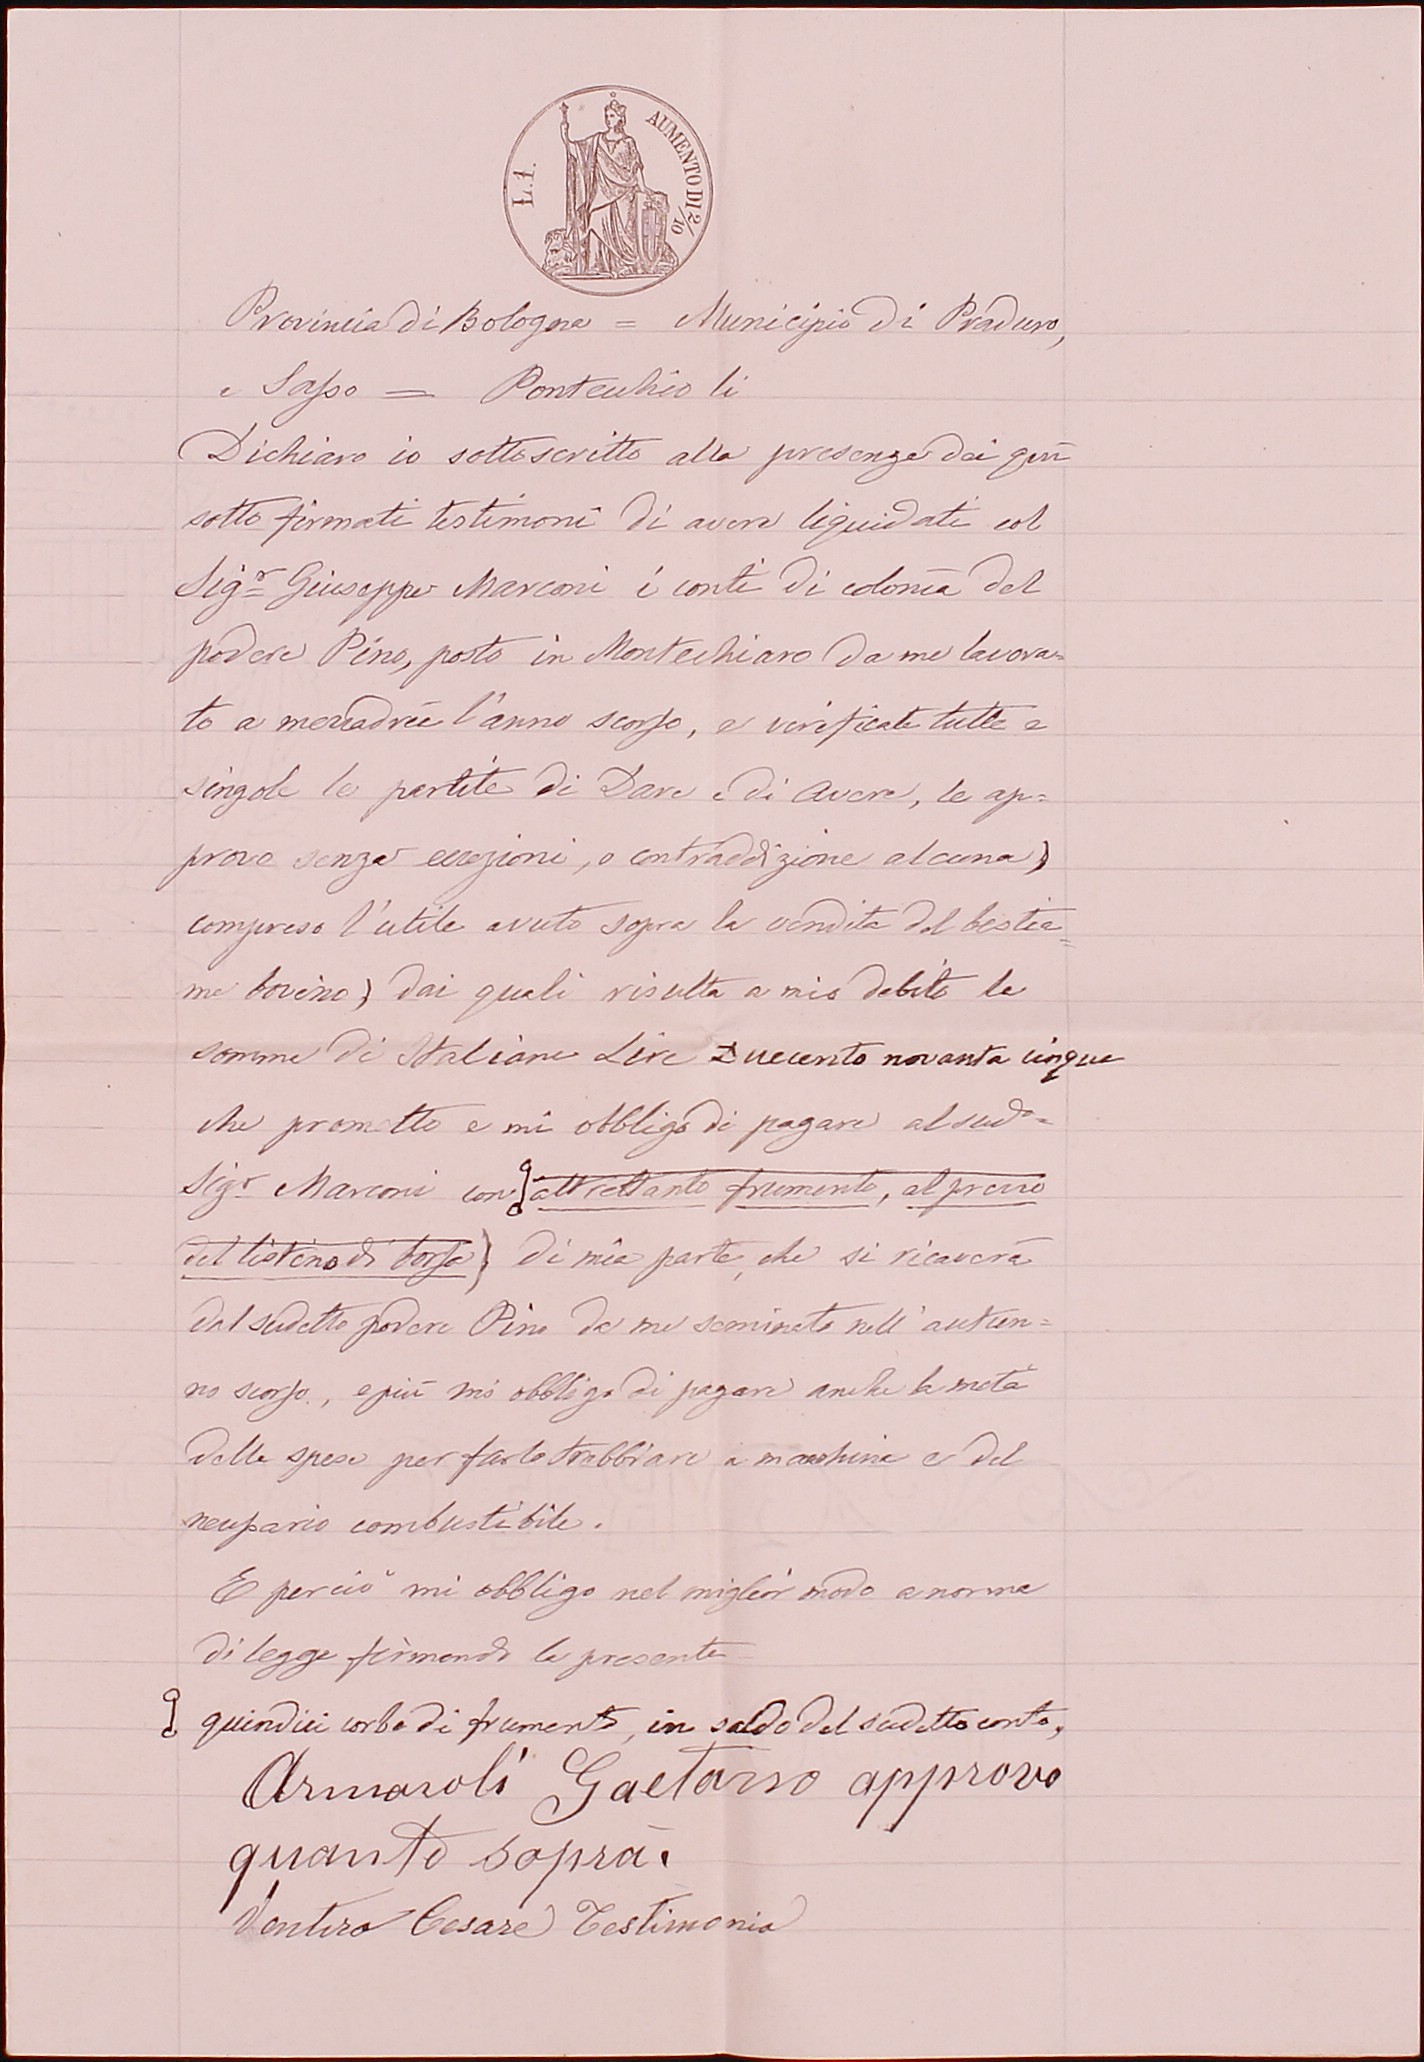 L. 1.
AUMENTO DI 2/10
Provincia di Bologna = Municipio di Praduro,
e Sasso = Pontecchio li
Dichiaro io sottoscritto alla presenza dei qui
sotto firmati testimoni di avere liquidati col
Sigr Giuseppe Marconi i conti di colonia del
podere Pino, posto in Montechiaro da me lavora=
to a mezzadria l'anno scorso, e verificate tutte e
singole le partite di Dare e di Avere, le ap=
provo senza eccezioni, o contraddizione alcuna)
compreso l'utile avuto sopra la vendita del bestia=
me bovino) dai quali risulta a mio debito la
somma di Italiane Lire Duecento novanta cinque
che prometto e mi obbligo di pagare al sudo=
Sigr Marconi con altrettanto frumento, al prezzo
del listino di borsa) di mia parte, che si ricaverà
dal sudetto podere Pino da me seminato nell'autun=
no scorso, e più mi obbligo di pagare anche la metà
delle spese per farlo trebbiare a macchina e del
necessario combustibile.
E perciò mi obbligo nel miglior modo a norma
di legge firmando la presente
quindici corbe di frumento, in saldo del sudetto conto,
Armaroli Gaetano approvo
quanto sopra.
Cesare Testimonio